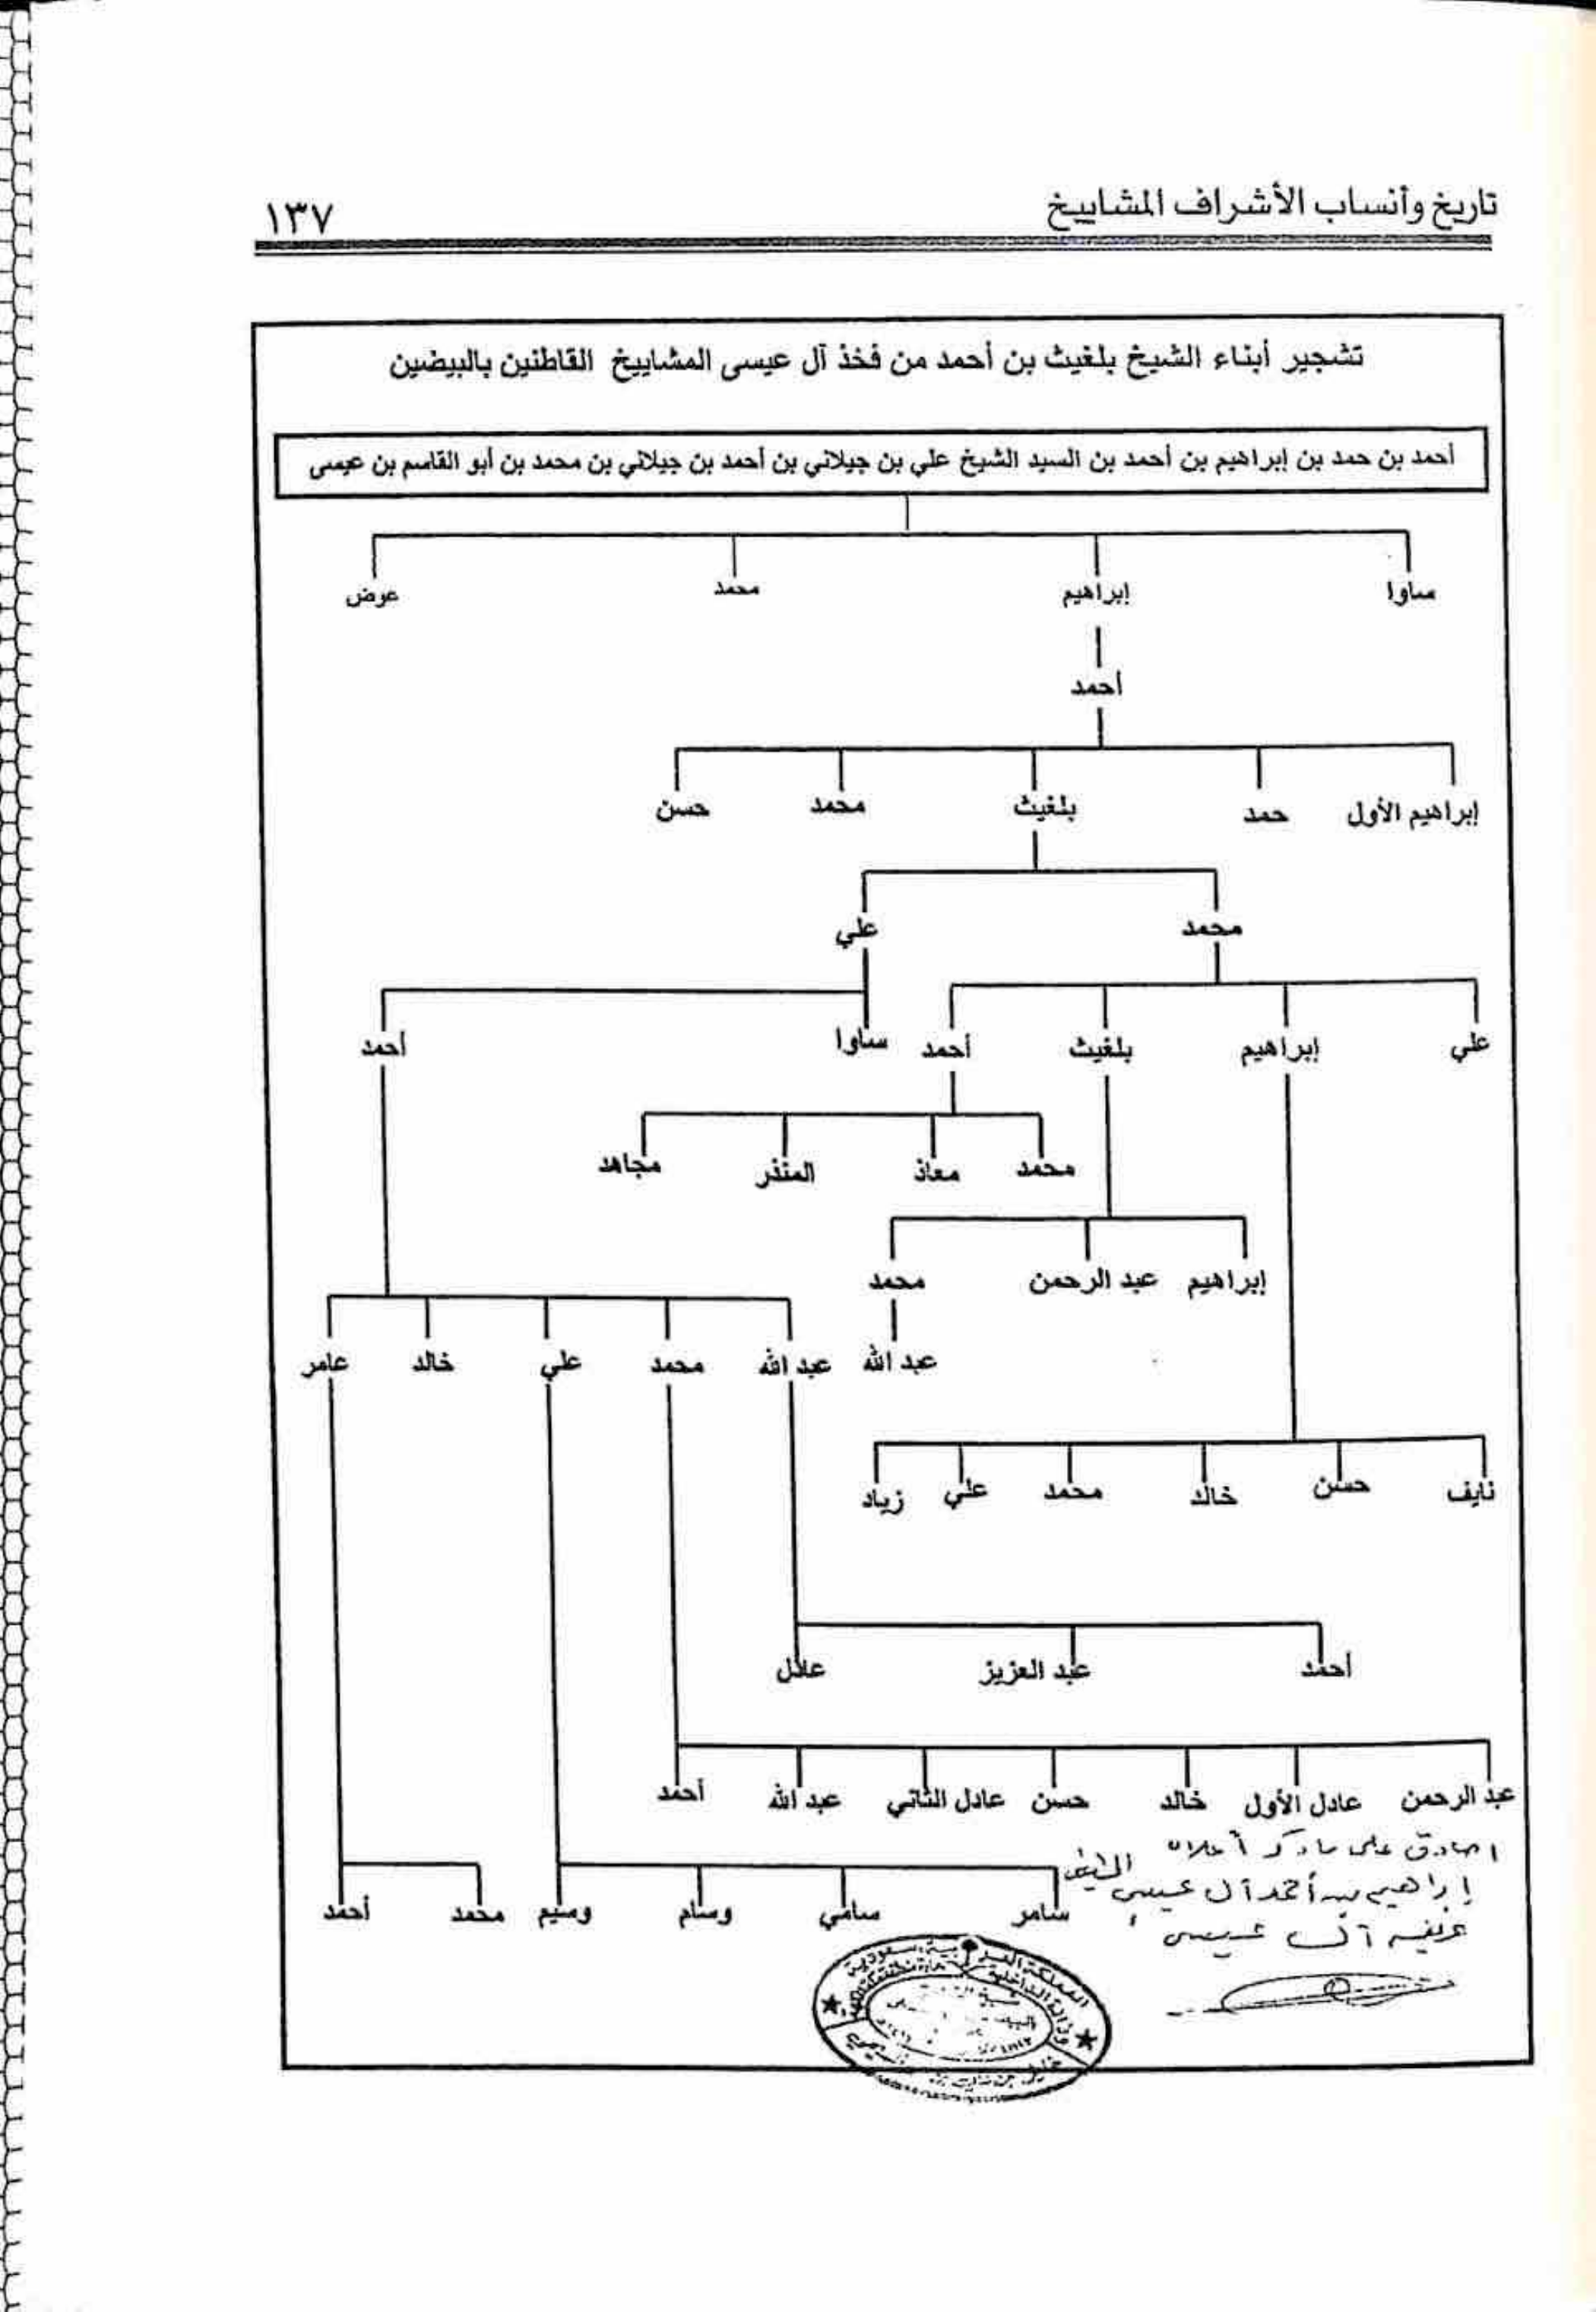 تاريخ وأنساب الأشراف المشاييخ
١٣٧
تشجير أبناء الشيخ بلغيث بن أحمد من فخذ آل عيسى المشاييخ القاطنين بالبيضين
أحمد بن حمد بن إبراهيم بن أحمد بن السيد الشيخ علي بن جيلاني بن أحمد بن جيلاني بن محمد بن أبو القاسم بن عيسى
ساوا إبراهيم محمد عوض
أحمد
إبراهيم الأول حمد بلغيث محمد حسن
محمد علي
علي إبراهيم بلغيث أحمد ساوا أحمد
محمد معاذ المنذر مجاهد
إبراهيم عبد الرحمن محمد
عبد الله عبد الله محمد علي خالد عامر
نايف حسن خالد محمد علي زياد
أحمد عبد العزيز عادل
عبد الرحمن عادل الأول خالد حسن عادل الثاني عبد الله أحمد
اصادق على ماذكر أعلاه
إبراهيم بن أحمد آل عيسى
سامر سامي وسام وسيم محمد أحمد
عريفه آل عيسى
المملكة العربية السعودية
وزارة الداخلية